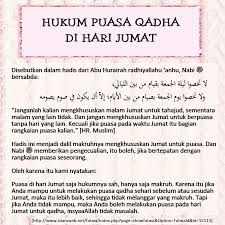 HUKUM PUASA QADHA
DI HARI JUMAT
Disebutkan dalam hadis dari Abu Hurairah radhiyallahu 'anhu, Nabi ﷺ
bersabda:
لا تخصوا ليلة الجمعة بقيام من بين الليالي،
ولا تخصوا يوم الجمعة بصيام من بين الأيام، إلا أن يكون في صوم يصومه
"Janganlah kalian mengkhususkan untuk melakukan tahajud, sementara
malam yang lain tidak. Dan jangan mengkhususkan untuk berpuasa
tanpa hari yang lain. Kecuali jika puasa pada waktu Jumat itu bagian
rangkaian puasa kalian." [HR. Muslim]
Hadis ini menjadi dalil makruhnya mengkhususkan untuk puasa. Dan
Nabi ﷺ memberikan pengecualian, itu boleh, jika bertepatan dengan
rangkaian puasa seseorang.
Oleh karena itu kami nyatakan:
Puasa di hari Jumat saja hukumnya sah, hanya saja makruh. Karena itu jika
Anda mampu untuk melakukan puasa qadha sehari sebelum atau sesudah
Jumat, maka itu lebih baik, sehingga tidak melanggar yang makruh. Tapi
jika Anda tidak mampu, maka Anda boleh melakukan puasa pada hari
Jumat untuk qadha, insyaaAllah tidak masalah.